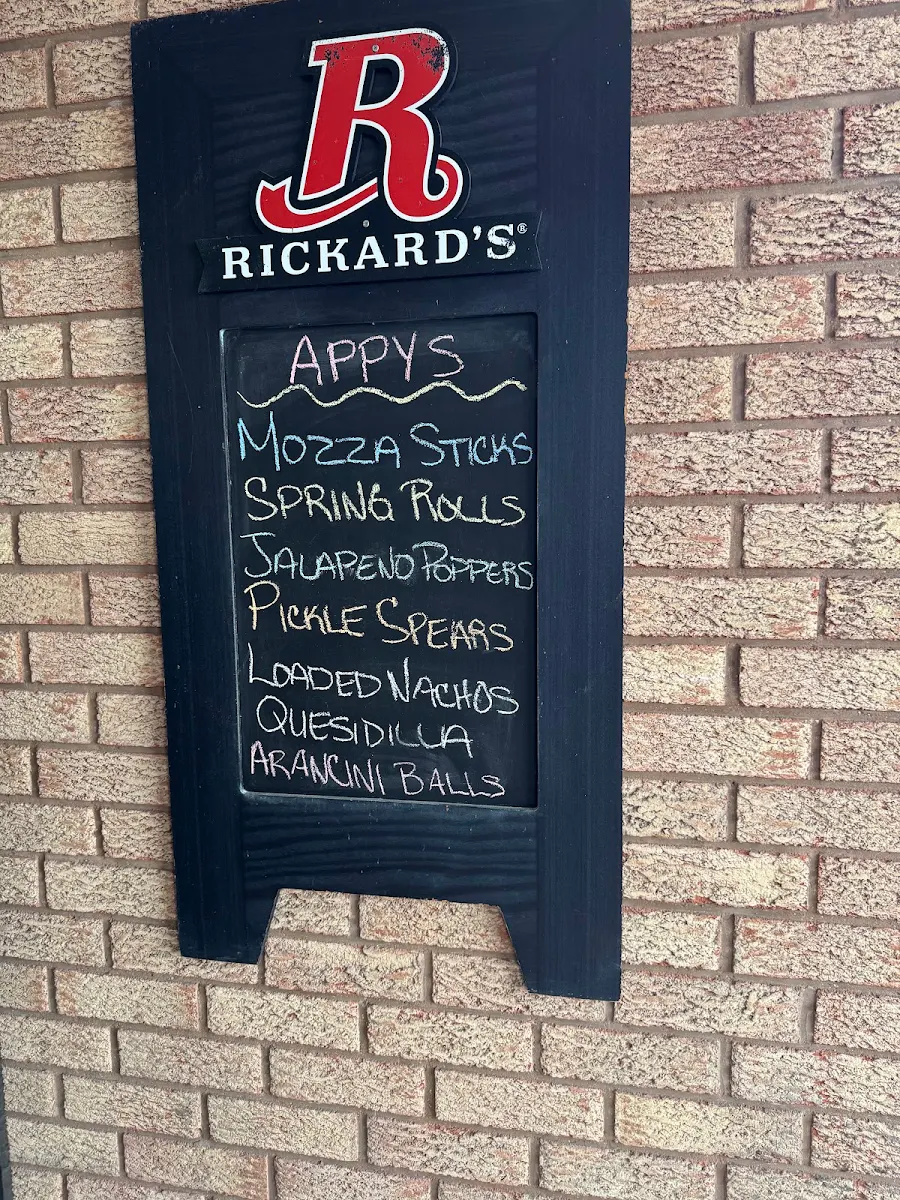 R
RICKARD'S®
APPYS
MOZZA STICKS
SPRING ROLLS
JALAPENO POPPERS
PICKLE SPEARS
LOADED NACHOS
QUESIDILLA
ARANCINI BALLS